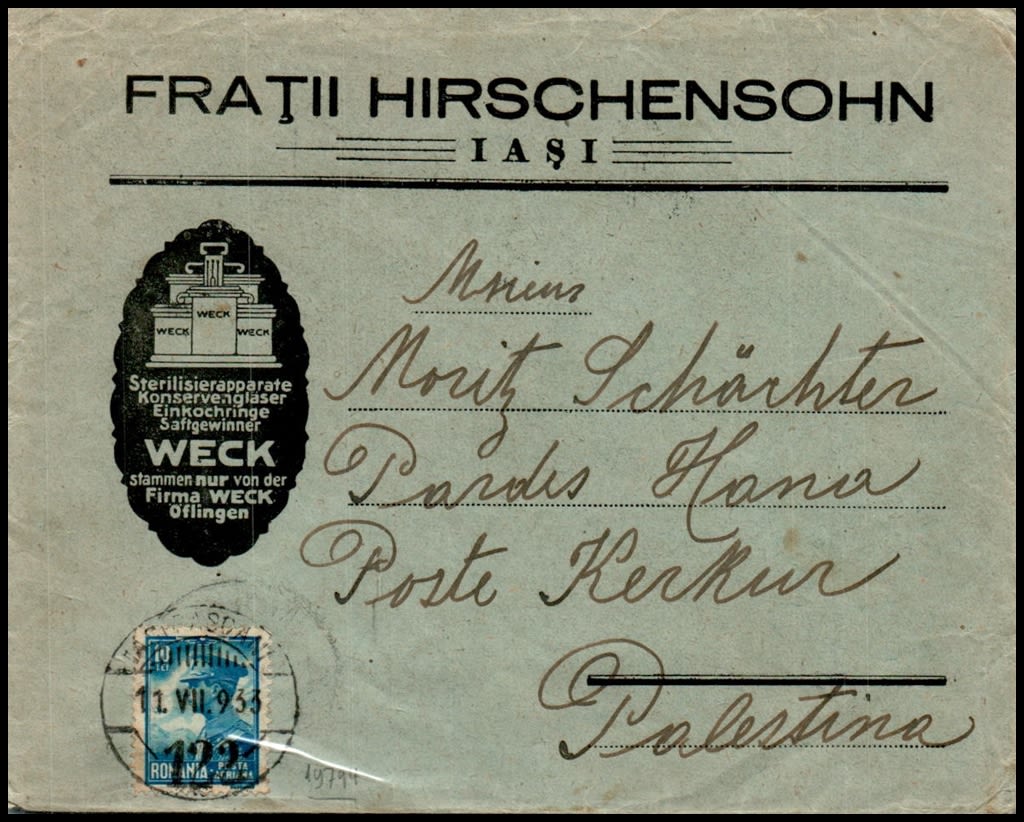 FRAŢII HIRSCHENSOHN
IAŞI
WECK
WECK WECK
Sterilisierapparate
Konservengläser
Einkochringe
Saftgewinner
WECK
stammen nur von der
Firma WECK
Öflingen
Moritz Schächter
Pardes Hana
Poste Kerkur
Palestina
10 LEI
11.VII.933
122
ROMANIA POSTA AERIANA
19794